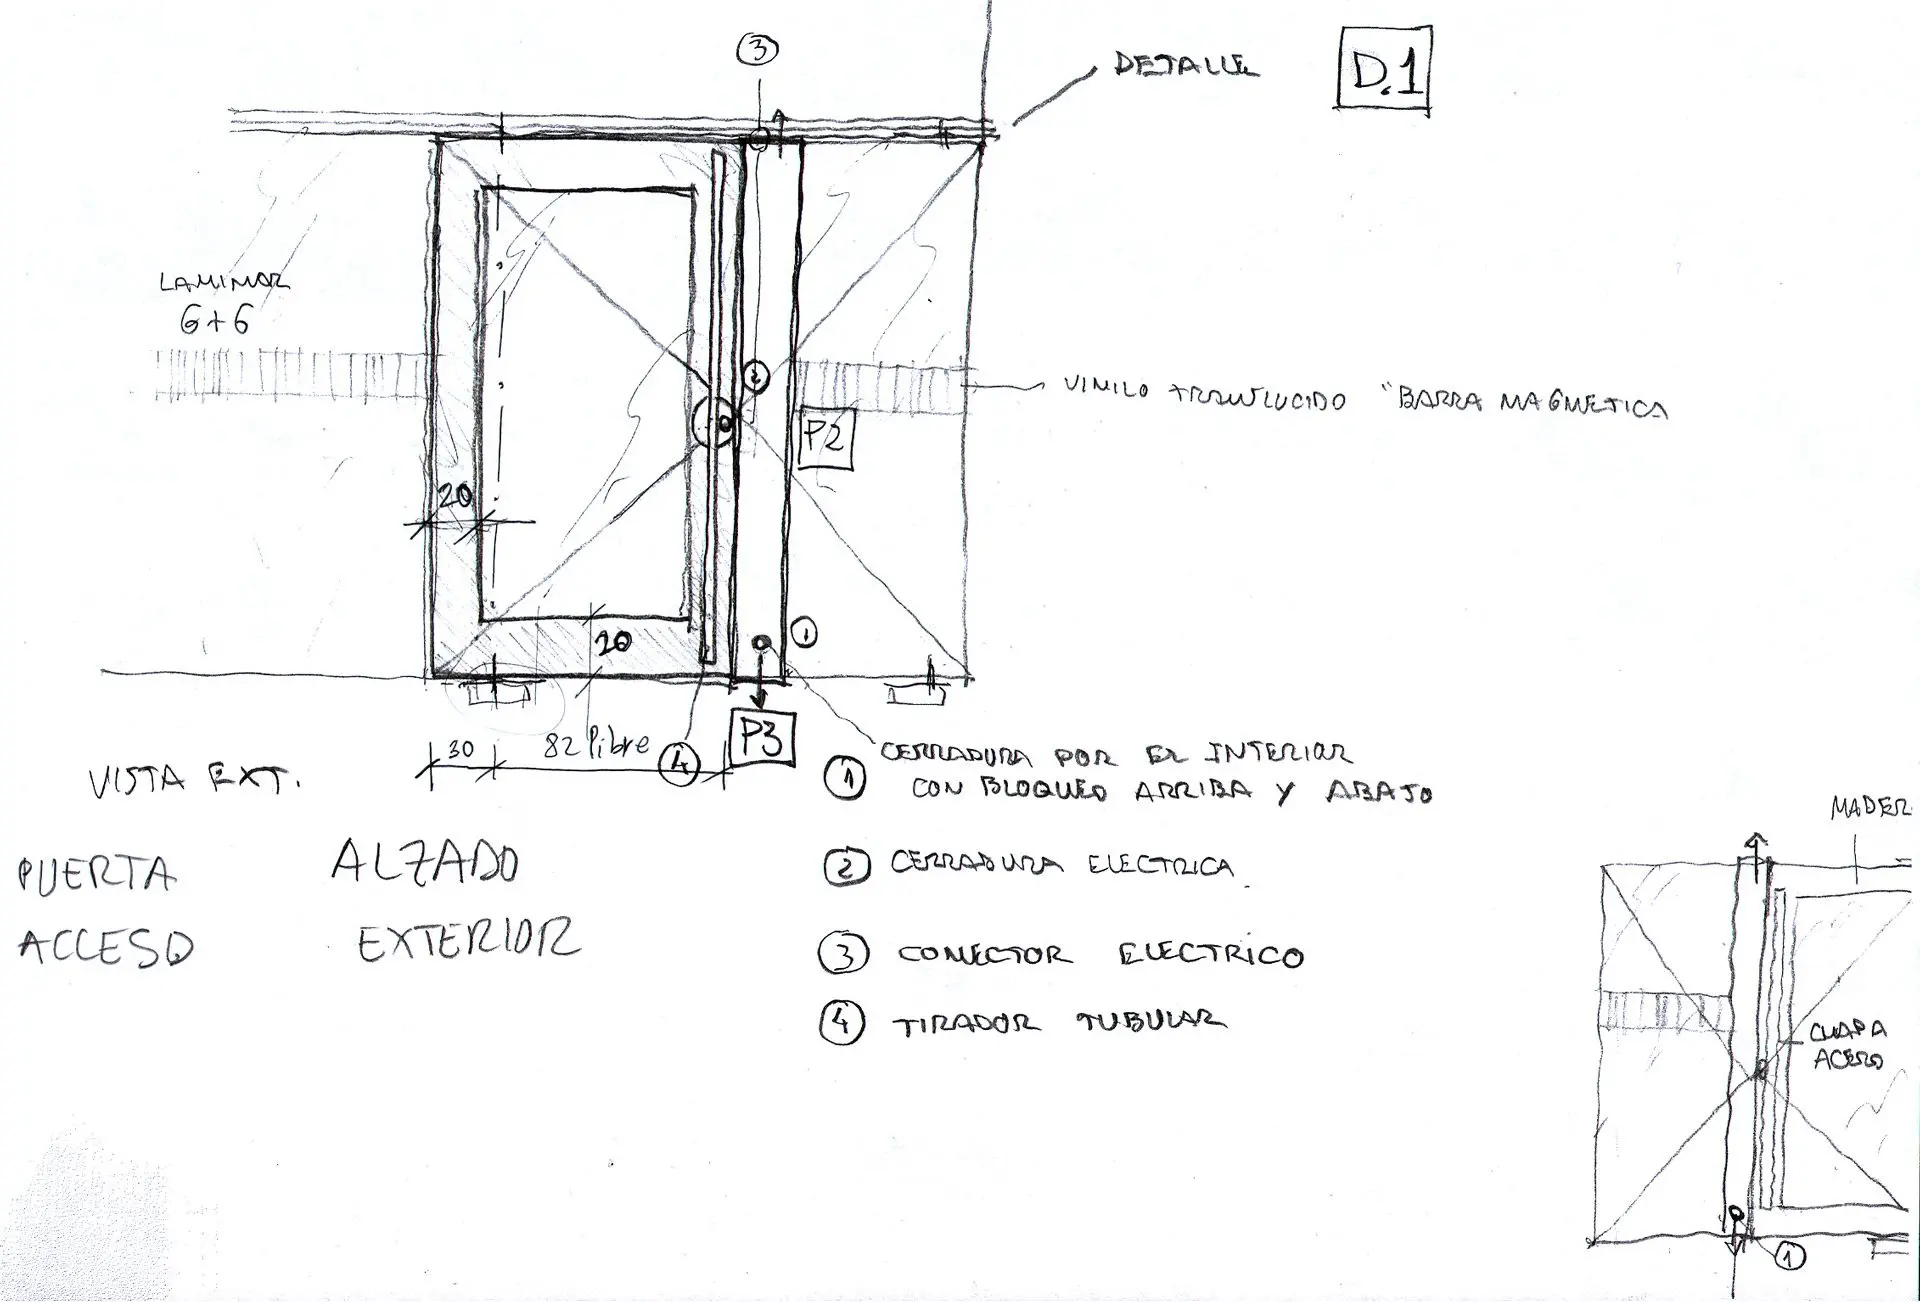 3
DETALLE
D.1
LAMINAR
6+6
2
VINILO TRANSLUCIDO "BARRA MAGNETICA
P2
20
1
20
P3
30
82 libre
4
VISTA EXT.
1 CERRADURA POR EL INTERIOR
CON BLOQUEO ARRIBA Y ABAJO
PUERTA ALZADO
ACCESO EXTERIOR
2 CERRADURA ELECTRICA
3 CONECTOR ELECTRICO
4 TIRADOR TUBULAR
MADER
CHAPA
ACERO
1